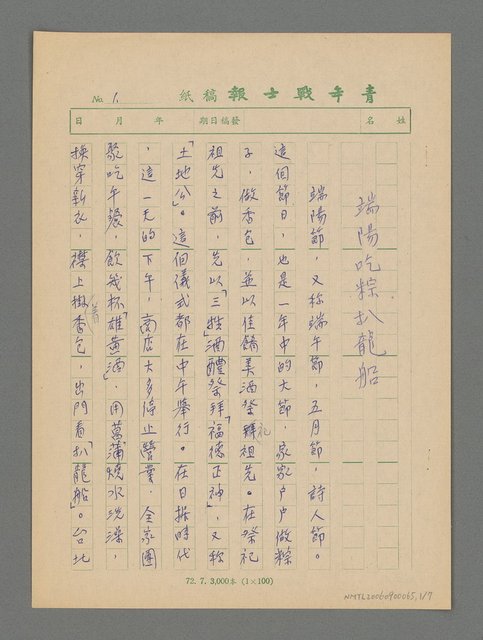 青年戰士報稿紙
No 1.
姓名 發稿日期 年 月 日
端陽吃粽扒龍船
端陽節，又称端午節，五月節，詩人節。
這個節日，也是一年中的大節，家家户户做粽
子，做香包，並以佳餚美酒祭祀祖先。在祭祀
祖先之前，先以「三牲」酒醴祭拜「福德正神」，又称
「土地公」。這個儀式都在中午舉行。在日据時代
，這一天的下午，商店大多停止營業，全家團
聚吃午餐，飲幾杯「雄黄酒」，用菖蒲燒水洗澡，
换穿新衣，襟上掛着香包，出門看「扒龍船」。台北
72. 7. 3,000本 (1×100)
NMTL20060900065, 1/7